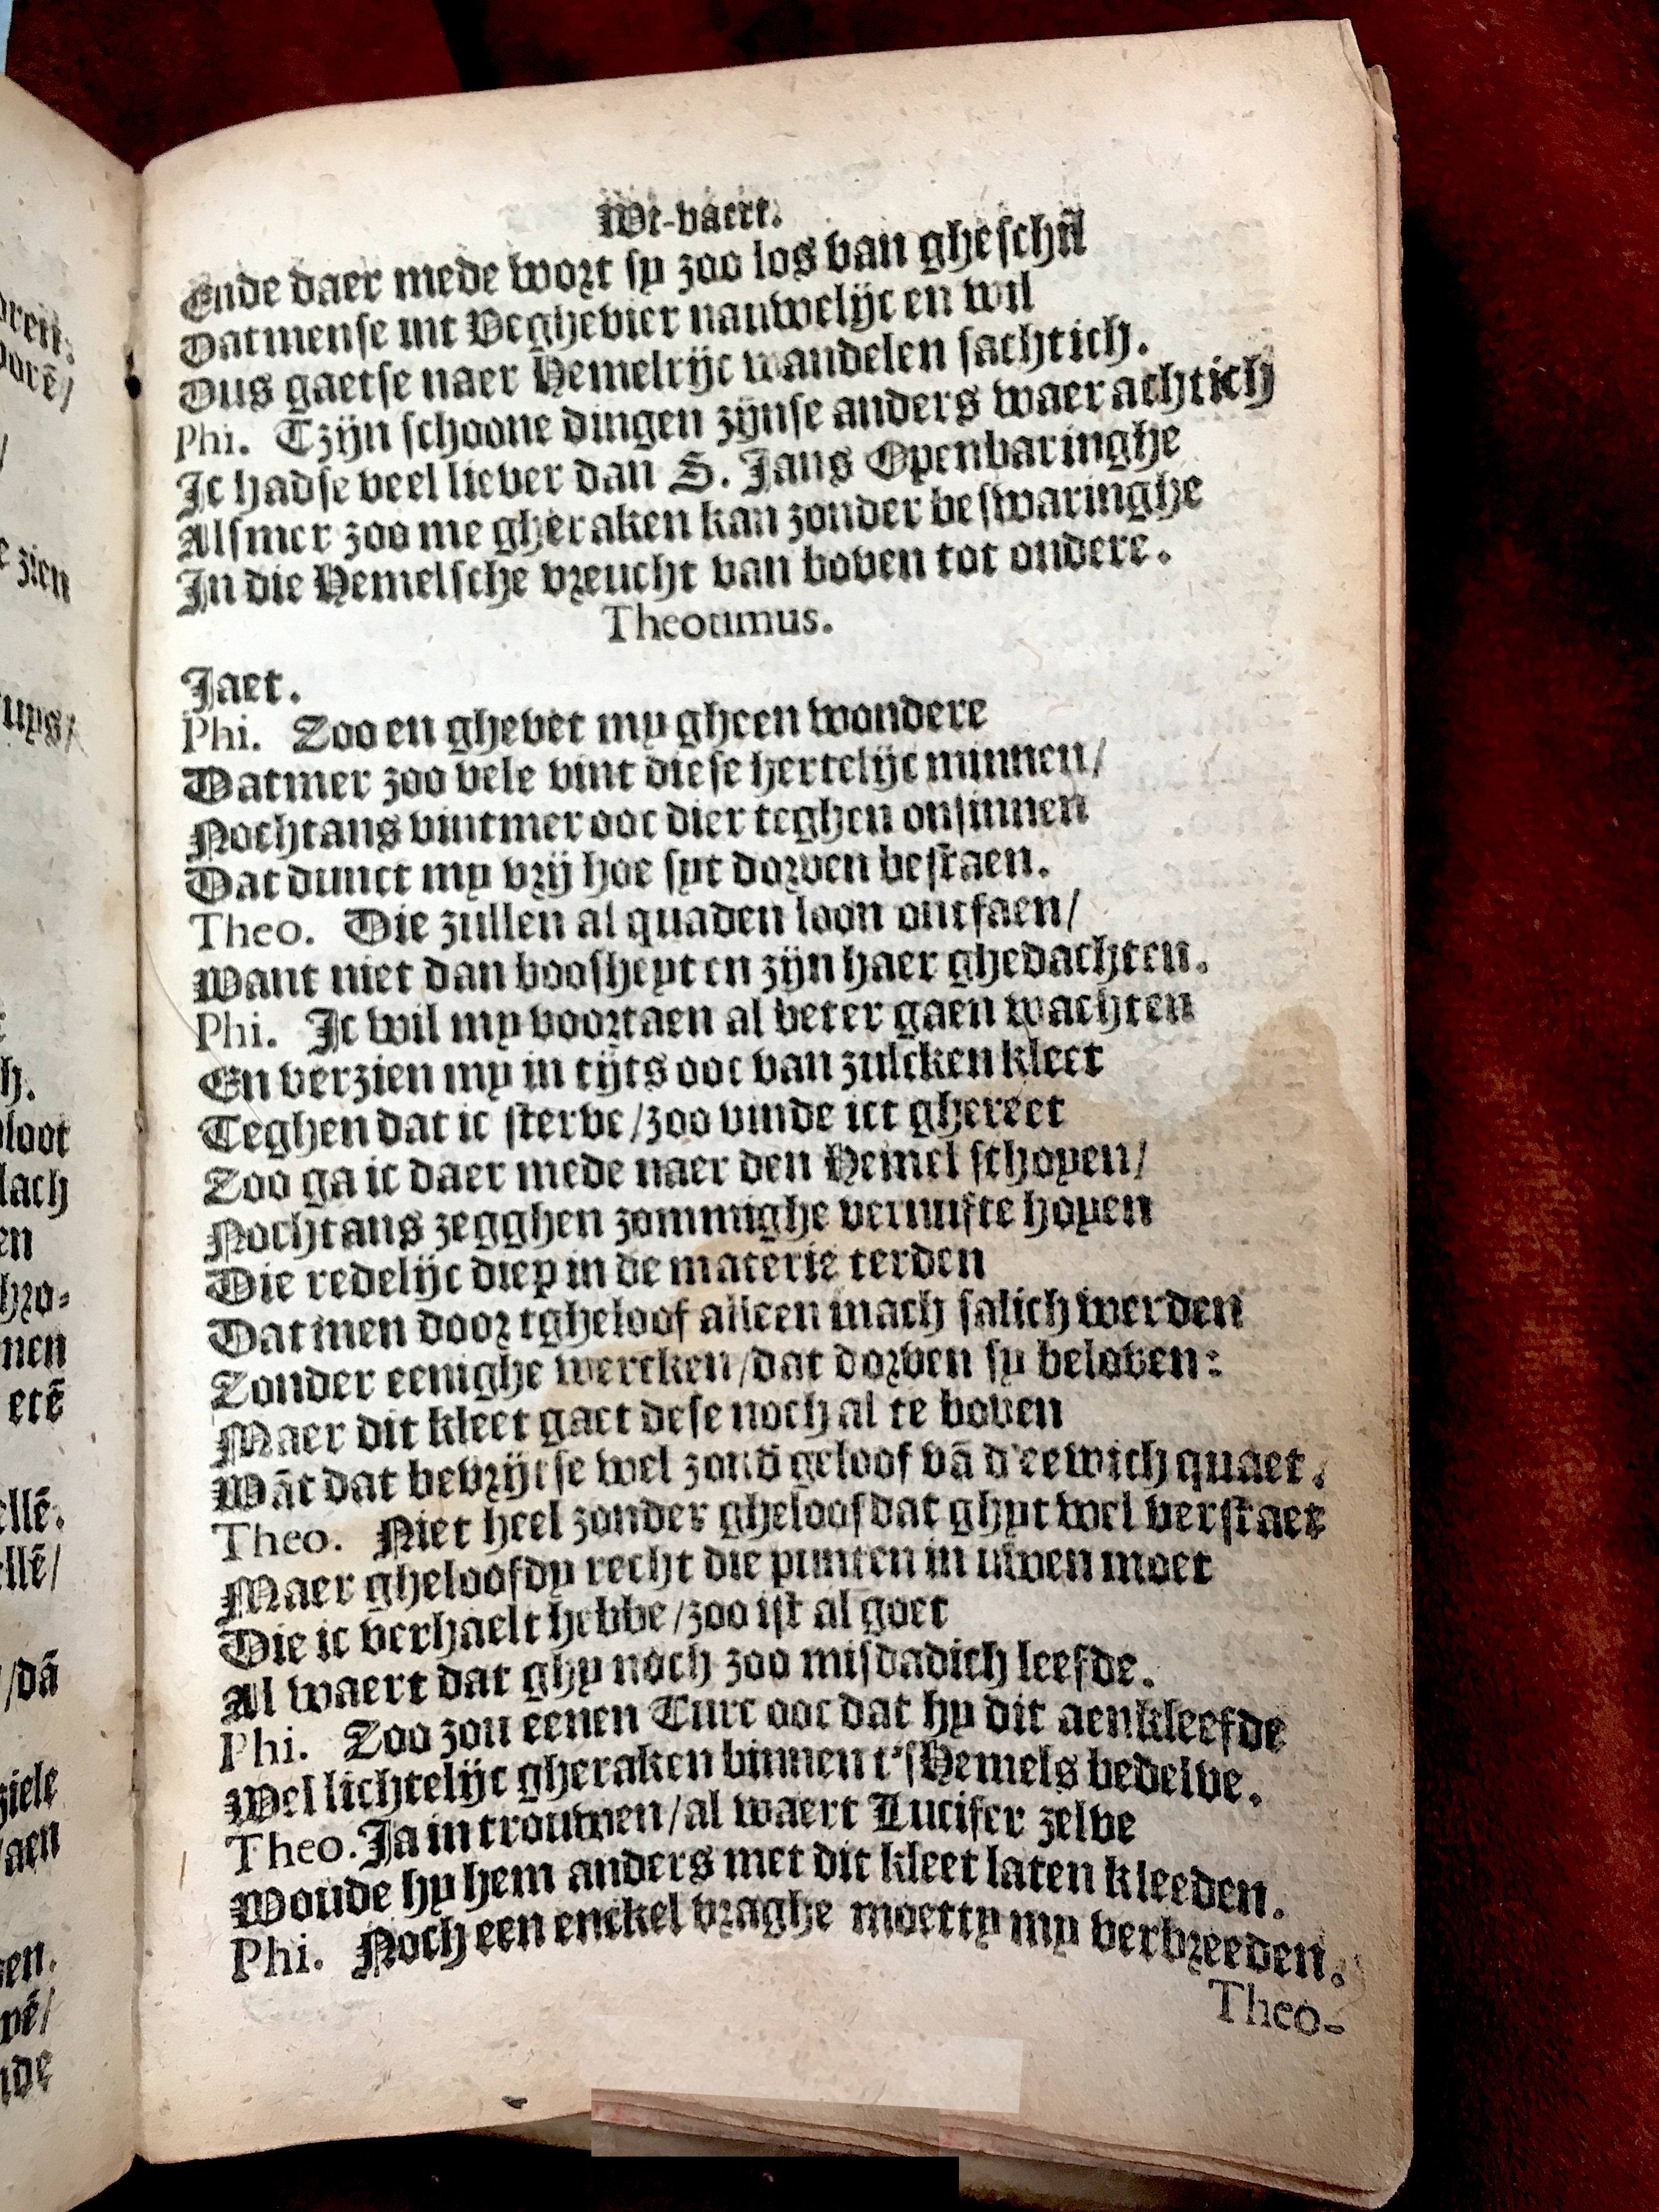 Wt-vaert.
Ende daer mede wort sy zoo los van gheschil
Datmense int Veghevier nauwelijc en wil
Dus gaetse naer Hemelrijc wandelen sachtich.
Phi. Tzijn schoone dingen zijnse anders waerachtich
Ic hadse veel liever dan S. Jans Openbaringhe
Alsmer zoo me gheraken kan zonder beswaringhe
In die Hemelsche vreucht van boven tot ondere.
Theotimus.
Jaet.
Phi. Zoo en ghevet my gheen wondere
Datmer zoo vele vint diese hertelijc minnen/
Nochtans vintmer ooc dier teghen onsinnen
Dat dunct my vrij hoe syt dorven bestaen.
Theo. Die zullen al quaden loon ontfaen/
Want niet dan boosheyt en zijn haer ghedachten.
Phi. Ic wil my voortaen al beter gaen wachten
En verzien my in tijts ooc van zulcken kleet
Teghen dat ic sterve/zoo vinde ict ghereet
Zoo ga ic daer mede naer den Hemel schoyen/
Nochtans zegghen zommighe vernufte hoyen
Die redelijc diep in de materie terden
Datmen door tgheloof alleen mach salich werden
Zonder eenighe wercken/dat dorven sy beloven:
Maer dit kleet gaet dese noch al te boven
Wāt dat bevrijtse wel zond̄ geloof vā d'eewich quaet.
Theo. Niet heel zonder gheloof dat ghyt wel verstaet
Maer gheloofdy recht die punten in uwen moet
Die ic verhaelt hebbe/zoo ist al goet
Al waert dat ghy noch zoo misdadich leefde.
Phi. Zoo zou eenen Turc ooc dat hy dit aenkleefde
Wel lichtelijc gheraken binnen t'sHemels bedelve.
Theo. Ja in trouwen/al waert Lucifer zelve
Woude hy hem anders met dit kleet laten kleeden.
Phi. Noch een enckel vraghe moetty my verbreeden.
Theo-